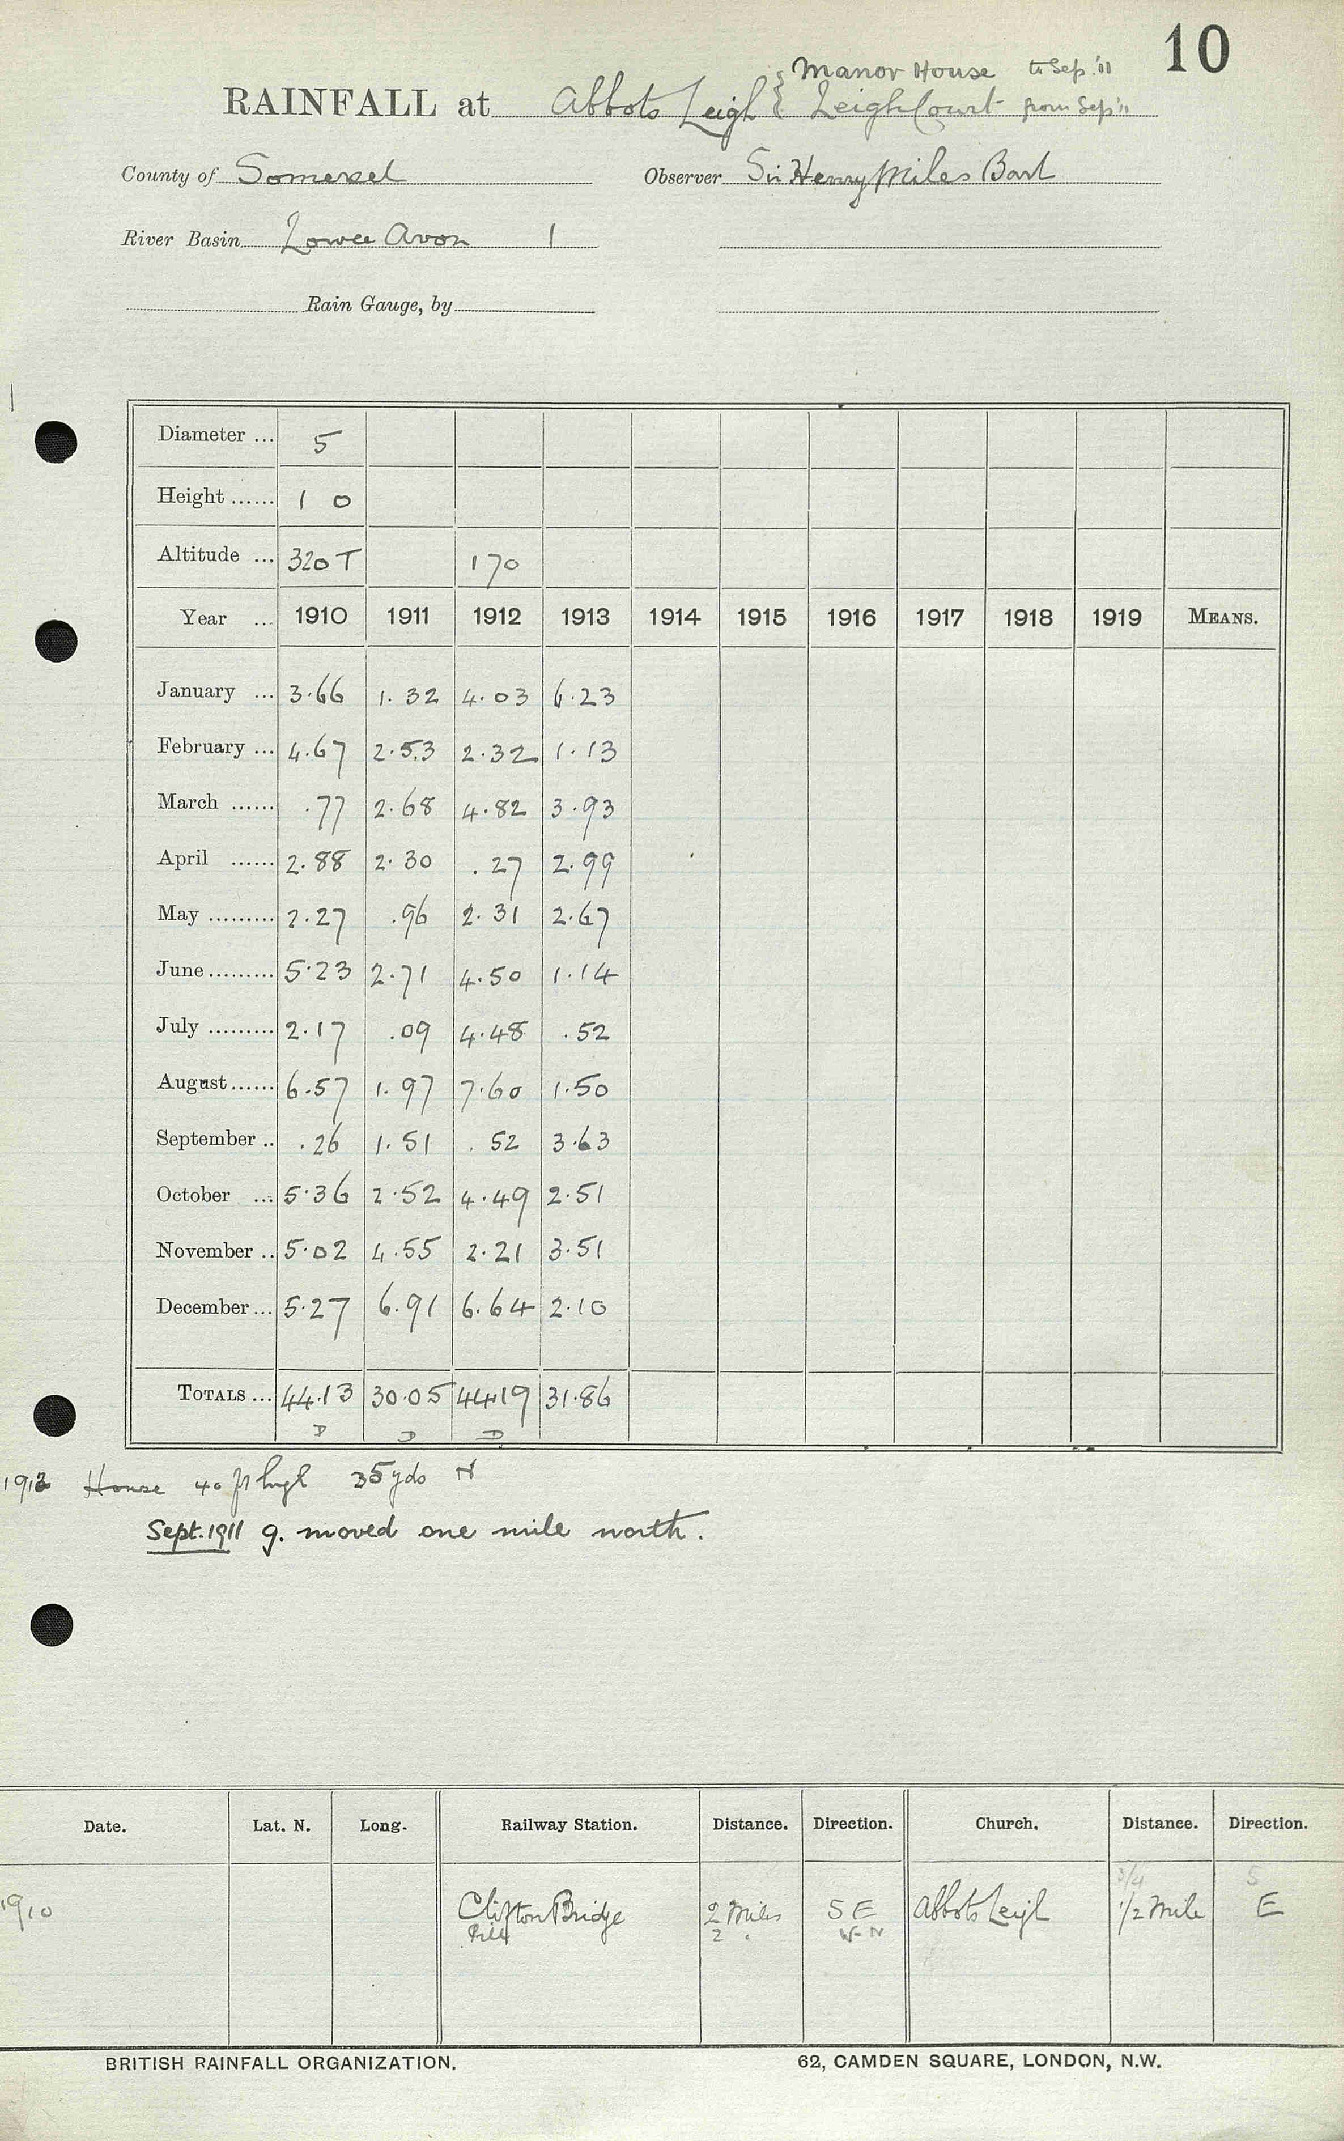 10
Manor House to Sep. '11
RAINFALL at Abbots Leigh { Leigh Court from Sep '11
County of Somerset Observer Sir Henry Miles Bart
River Basin Lower Avon 1
Rain Gauge, by
Diameter ... 5
Height ...... 1 0
Altitude ... 320 T 170
Year ... 1910 1911 1912 1913 1914 1915 1916 1917 1918 1919 MEANS.
January ... 3.66 1.32 4.03 6.23
February ... 4.67 2.53 2.32 1.13
March ...... .77 2.68 4.82 3.93
April ...... 2.88 2.30 .27 2.99
May ......... 2.27 .96 2.31 2.67
June ......... 5.23 2.71 4.50 1.14
July ......... 2.17 .09 4.48 .52
August ...... 6.57 1.97 7.60 1.50
September .. .26 1.51 .52 3.63
October ... 5.36 2.52 4.49 2.51
November .. 5.02 4.55 2.21 3.51
December ... 5.27 6.91 6.64 2.10
TOTALS ... 44.13 30.05 44.19 31.86
D D D
House 40 ft high 35 yds N
Sept. 1911 g. moved one mile north.
Date. Lat. N. Long. Railway Station. Distance. Direction. Church. Distance. Direction.
3/4 S
1910 Clifton Bridge 2 Miles SE Abbots Leigh 1/2 Mile E
Pill 2 " W-N
BRITISH RAINFALL ORGANIZATION. 62, CAMDEN SQUARE, LONDON, N.W.